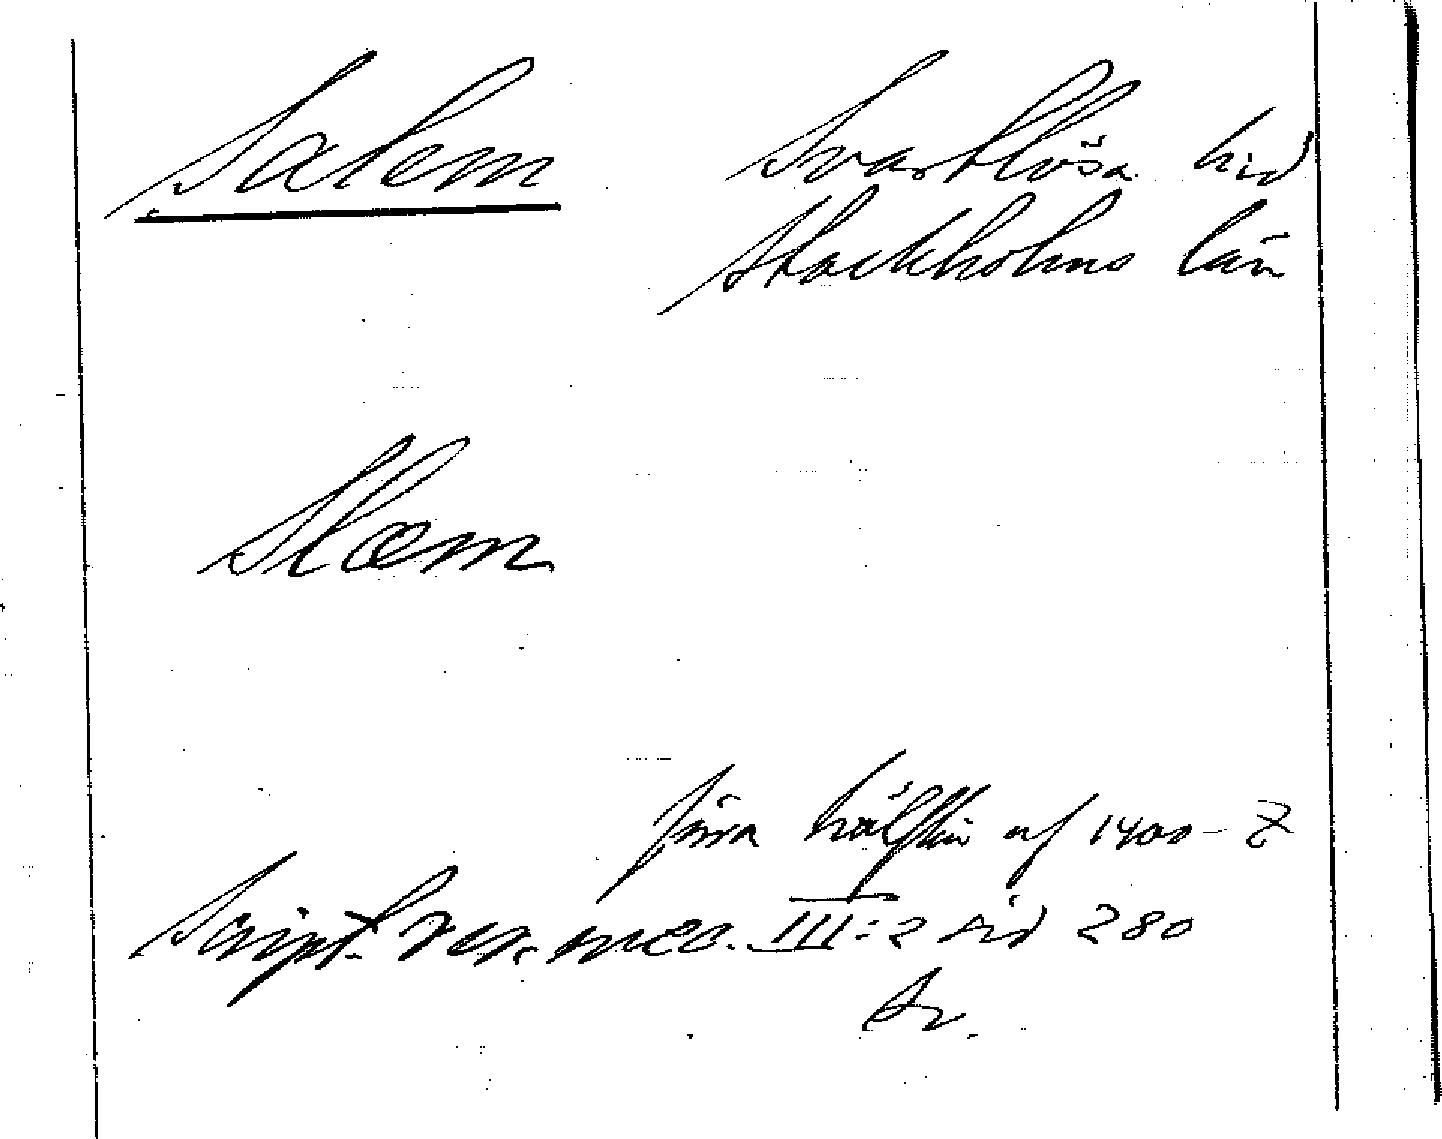 Salem Svartlösa hd
Stockholms län
Slæm
förra hälften af 1400-t
Script. rer. suec. III:2 sid 280
Sv.